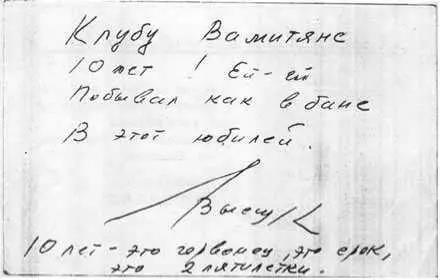 Клубу Вамитяне
10 лет! Ей-ей
Побывал как в бане
В этот юбилей.
Высоц
10 лет - это червонец, это срок,
это 2 пятилетки.